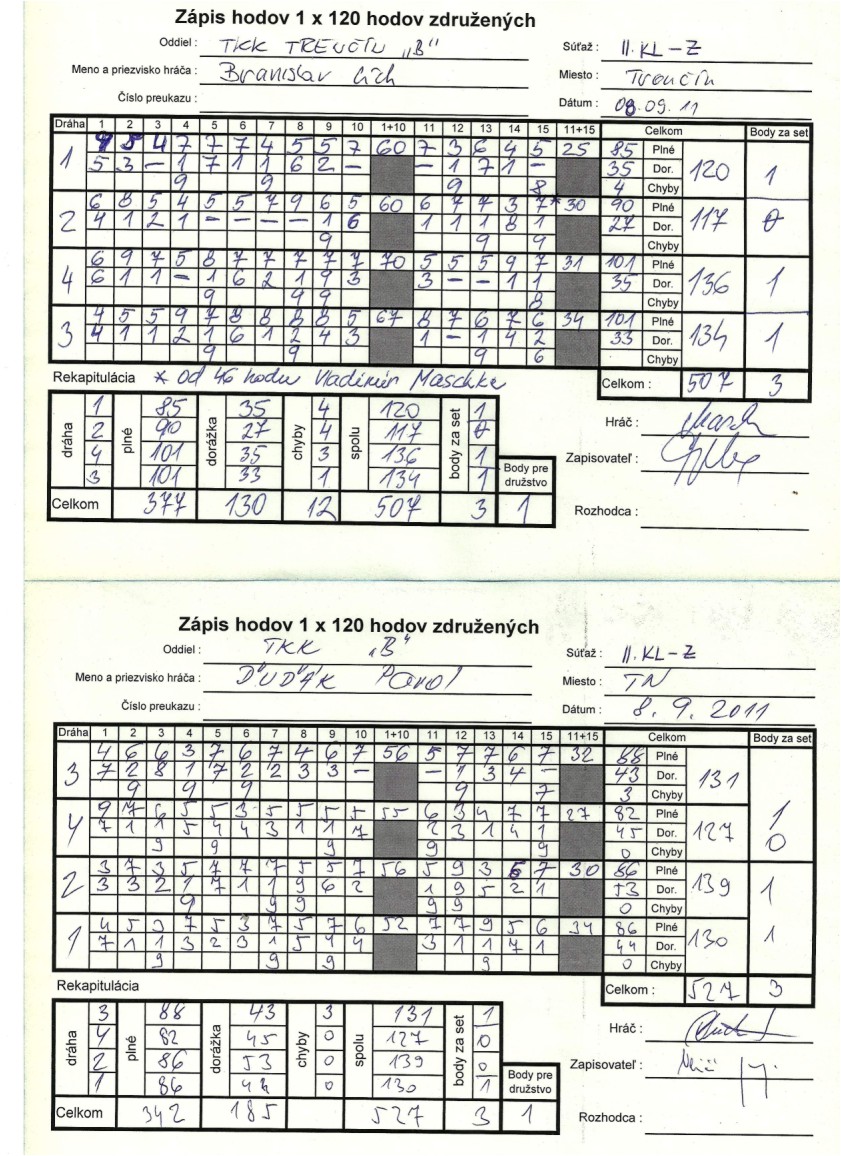 Zápis hodov 1 x 120 hodov združených
Oddiel : TKK TRENČÍN „B" Súťaž : II. KL – Z
Meno a priezvisko hráča : Branislav Miesto : Trenčín
Číslo preukazu : Dátum : 08.09.11
Dráha 1 2 3 4 5 6 7 8 9 10 1+10 11 12 13 14 15 11+15 Celkom Body za set
1 9 5 4 7 7 7 4 5 5 7 60 7 3 6 4 5 25 85 Plné
5 3 – 1 7 1 1 6 2 – – 1 7 1 – 35 Dor. 120 1
9 9 9 8 4 Chyby
2 6 8 5 4 5 5 7 9 6 5 60 6 7 7 3 7* 30 90 Plné
4 1 2 1 – – – – 1 6 1 1 1 8 1 27 Dor. 117 0
9 9 9 Chyby
4 6 9 7 5 8 7 7 7 7 7 70 5 5 5 9 7 31 101 Plné
6 1 1 – 1 6 2 1 9 3 3 – – 1 1 35 Dor. 136 1
9 9 9 8 Chyby
3 4 5 5 9 7 8 8 8 8 5 67 8 7 6 7 6 34 101 Plné
4 1 1 2 1 6 1 2 4 3 1 – 1 4 2 33 Dor. 134 1
9 9 9 6 Chyby
Rekapitulácia * od 46 hodu Vladimír Maschke Celkom : 507 3
dráha plné dorážka chyby spolu body za set
1 85 35 4 120 1
2 90 27 4 117 0
4 101 35 3 136 1
3 101 33 1 134 1
Body pre družstvo
Celkom 377 130 12 507 3 1
Hráč :
Zapisovateľ :
Rozhodca :
Zápis hodov 1 x 120 hodov združených
Oddiel : TKK „B" Súťaž : II. KL – Z
Meno a priezvisko hráča : ĎUĎÁK Pavol Miesto : TN
Číslo preukazu : Dátum : 8. 9. 2011
Dráha 1 2 3 4 5 6 7 8 9 10 1+10 11 12 13 14 15 11+15 Celkom Body za set
3 4 6 6 3 7 6 7 4 6 7 56 5 7 7 6 7 32 88 Plné
7 2 8 1 7 2 2 3 3 – – 1 3 4 – 43 Dor. 131 1
9 9 9 9 7 3 Chyby
4 9 7 5 5 3 5 5 5 5 55 6 3 4 7 7 27 82 Plné
7 1 1 5 4 4 3 1 1 7 2 3 1 4 1 45 Dor. 127 0
9 9 9 9 9 0 Chyby
2 3 7 3 5 7 7 7 5 5 7 56 5 9 3 6 7 30 86 Plné
3 3 2 1 7 1 1 9 6 2 1 9 5 2 1 53 Dor. 139 1
9 9 9 9 9 0 Chyby
1 4 5 3 7 5 3 7 5 7 6 52 7 7 9 5 6 34 86 Plné
7 1 1 3 2 3 1 5 4 4 3 1 1 7 1 44 Dor. 130 1
9 9 9 9 0 Chyby
Rekapitulácia Celkom : 527 3
dráha plné dorážka chyby spolu body za set
3 88 43 3 131 1
4 82 45 0 127 0
2 86 53 0 139 0
1 86 44 0 130 1
Body pre družstvo
Celkom 342 185 527 3 1
Hráč :
Zapisovateľ :
Rozhodca :